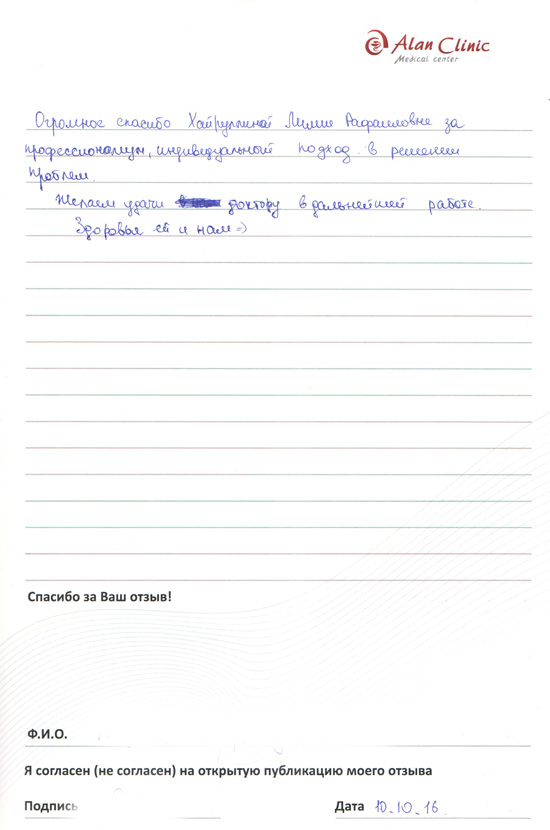 Alan Clinic
Medical center
Огромное спасибо Хайруллиной Лилие Рафаиловне за
профессионализм, индивидуальный подход в решении
проблем.
Желаем удачи доктору в дальнейшей работе.
Здоровья ей и нам =)
Спасибо за Ваш отзыв!
Ф.И.О.
Я согласен (не согласен) на открытую публикацию моего отзыва
Подпись
Дата 10.10.16.